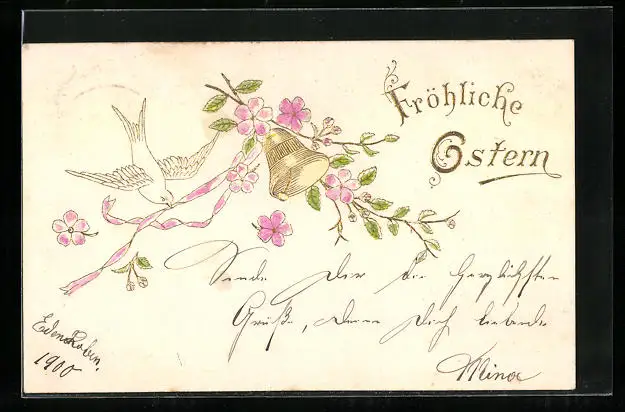 Fröhliche
Ostern
Sende Dir die herzlichsten
Grüße, Deine Dich liebende
Mina
Edenkoben,
1900